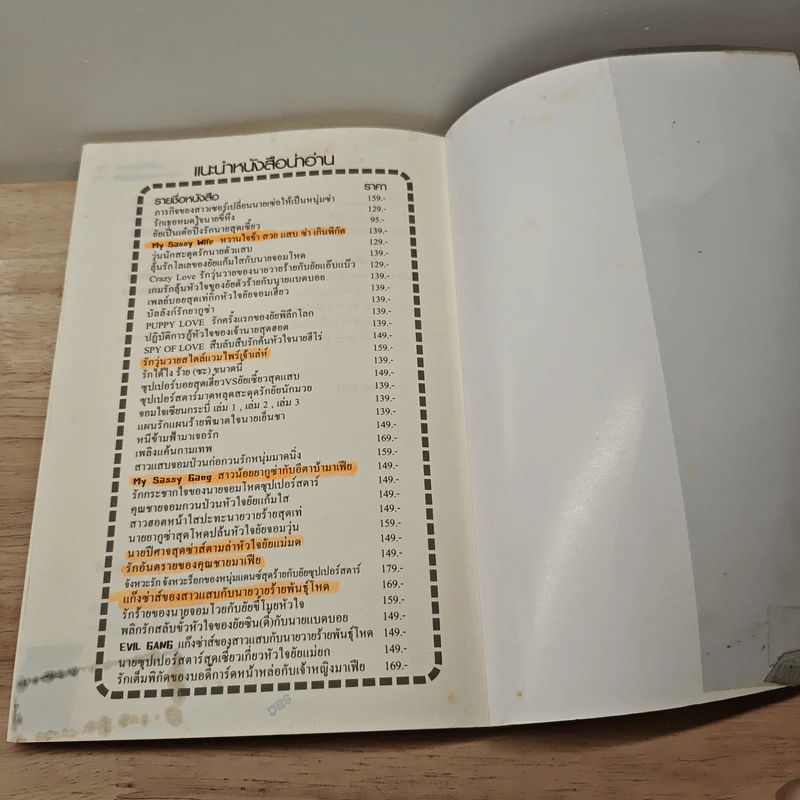 แนะนำหนังสือน่าอ่าน
รายชื่อหนังสือ ราคา
ภารกิจของสาวเซอร์เปลี่ยนนายเซ่อให้เป็นหนุ่มซ่า 159.-
รักเธอหมดใจนายขี้หึง 129.-
ยัยเป็นเด๋อปิ๊งรักนายสุดเซี้ยว 95.-
My Sassy Wife หวานใจข้า สวย แสบ ซ่า เกินพิกัด 139.-
วุ่นนักสะดุดรักนายตัวแสบ 129.-
ลุ้นรักโลเลของยัยแก้มใสกับนายจอมโหด 139.-
Crazy Love รักวุ่นวายของนายวายร้ายกับยัยแอ๊บแบ๊ว 129.-
เกมรักลุ้นหัวใจของยัยตัวร้ายกับนายแบดบอย 139.-
เพลย์บอยสุดเท่กิ๊กหัวใจยัยจอมเฮี้ยว 139.-
บัลลังก์รักยากูซ่า 139.-
PUPPY LOVE รักครั้งแรกของยัยพิลึกโลก 139.-
ปฏิบัติการกู้หัวใจของเจ้านายสุดฮอต 139.-
SPY OF LOVE สืบลับสืบรักค้นหัวใจนายฮีโร่ 149.-
รักวุ่นวายสไตล์แวมไพร์เจ้าเล่ห์ 159.-
รักได้ไง ร้าย (ซะ) ขนาดนี้ 139.-
ซุปเปอร์บอยสุดเฮี้ยวVSยัยเซี้ยวสุดแสบ 149.-
ซุปเปอร์สตาร์มาดหลุดสะดุดรักยัยนักมวย 139.-
จอมใจเซียนกระบี่ เล่ม 1 , เล่ม 2 , เล่ม 3 139.-
แผนรักแผนร้ายพิฆาตใจนายเย็นชา 139.-
หนีข้ามฟ้ามาเจอรัก 149.-
เพลิงแค้นกามเทพ 169.-
สาวแสบจอมป่วนก่อกวนรักหนุ่มมาดนิ่ง 159.-
My Sassy Gang สาวน้อยยากูซ่ากับอีตาบ้ามาเฟีย 149.-
รักกระชากใจของนายจอมโหดซุปเปอร์สตาร์ 149.-
คุณชายจอมกวนป่วนหัวใจยัยแก้มใส 149.-
สาวฮอตหน้าใสปะทะนายวายร้ายสุดเท่ 149.-
นายยากูซ่าสุดโหดปล้นหัวใจยัยจอมวุ่น 159.-
นายปีศาจสุดซ่าส์ตามล่าหัวใจยัยแม่มด 149.-
รักอันตรายของคุณชายมาเฟีย 149.-
จังหวะรัก จังหวะร็อกของหนุ่มแดนซ์สุดร้ายกับยัยซุปเปอร์สตาร์ 179.-
แก๊งซ่าส์ของสาวแสบกับนายวายร้ายพันธุ์โหด 169.-
รักร้ายของนายจอมโวยกับยัยขี้ โมยหัวใจ 159.-
พลิกรักสลับขั้วหัวใจของยัยซิน(ดี้)กับนายแบดบอย 149.-
EVIL GANG แก๊งซ่าส์ของสาวแสบกับนายวายร้ายพันธุ์โหด 149.-
นายซุปเปอร์สตาร์สุดเซี้ยวเกี่ยวหัวใจยัยแม่ยก 149.-
รักเต็มพิกัดของบอดี้การ์ดหน้าหล่อกับเจ้าหญิงมาเฟีย 169.-
SBC